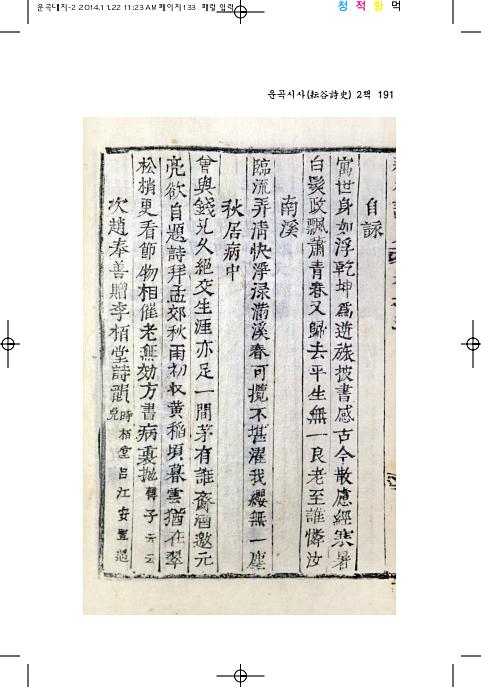 운곡대지-2 2014.11.22 11:23 AM 페이지133
청 적 황 먹
운곡시사(耘谷詩史) 2책 191
自詠
寓世身如浮乾坤爲逆旅披書感古今散慮經寒暑
白髮政飄蕭青春又歸去平生無一良老至誰憐汝
南溪
臨流弄清快浮渌滿溪春可攬不堪濯我纓無一塵
秋居病中
曾與錢兄久絶交生涯亦足一間茅有誰齎酒邀元
亮欲自題詩拜孟郊秋雨初收黃稻頃暮雲猶在翠
松梢更看節物相催老無効方書病裏抛
次趙奉善贈李栢堂詩韻 時栢堂呂江安置過